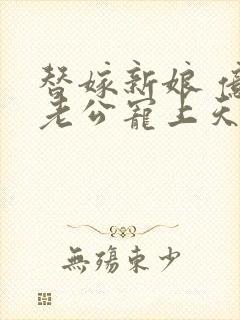 替嫁新娘 億
老公寵上天
無殤東少